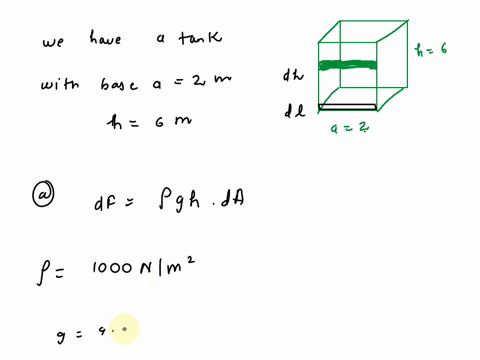 we have a tank
with base a = 2 m
h = 6 m
h = 6
dh
dl
a = 2
ⓐ dF = ρgh . dA
ρ = 1000 N/m²
g = 9.